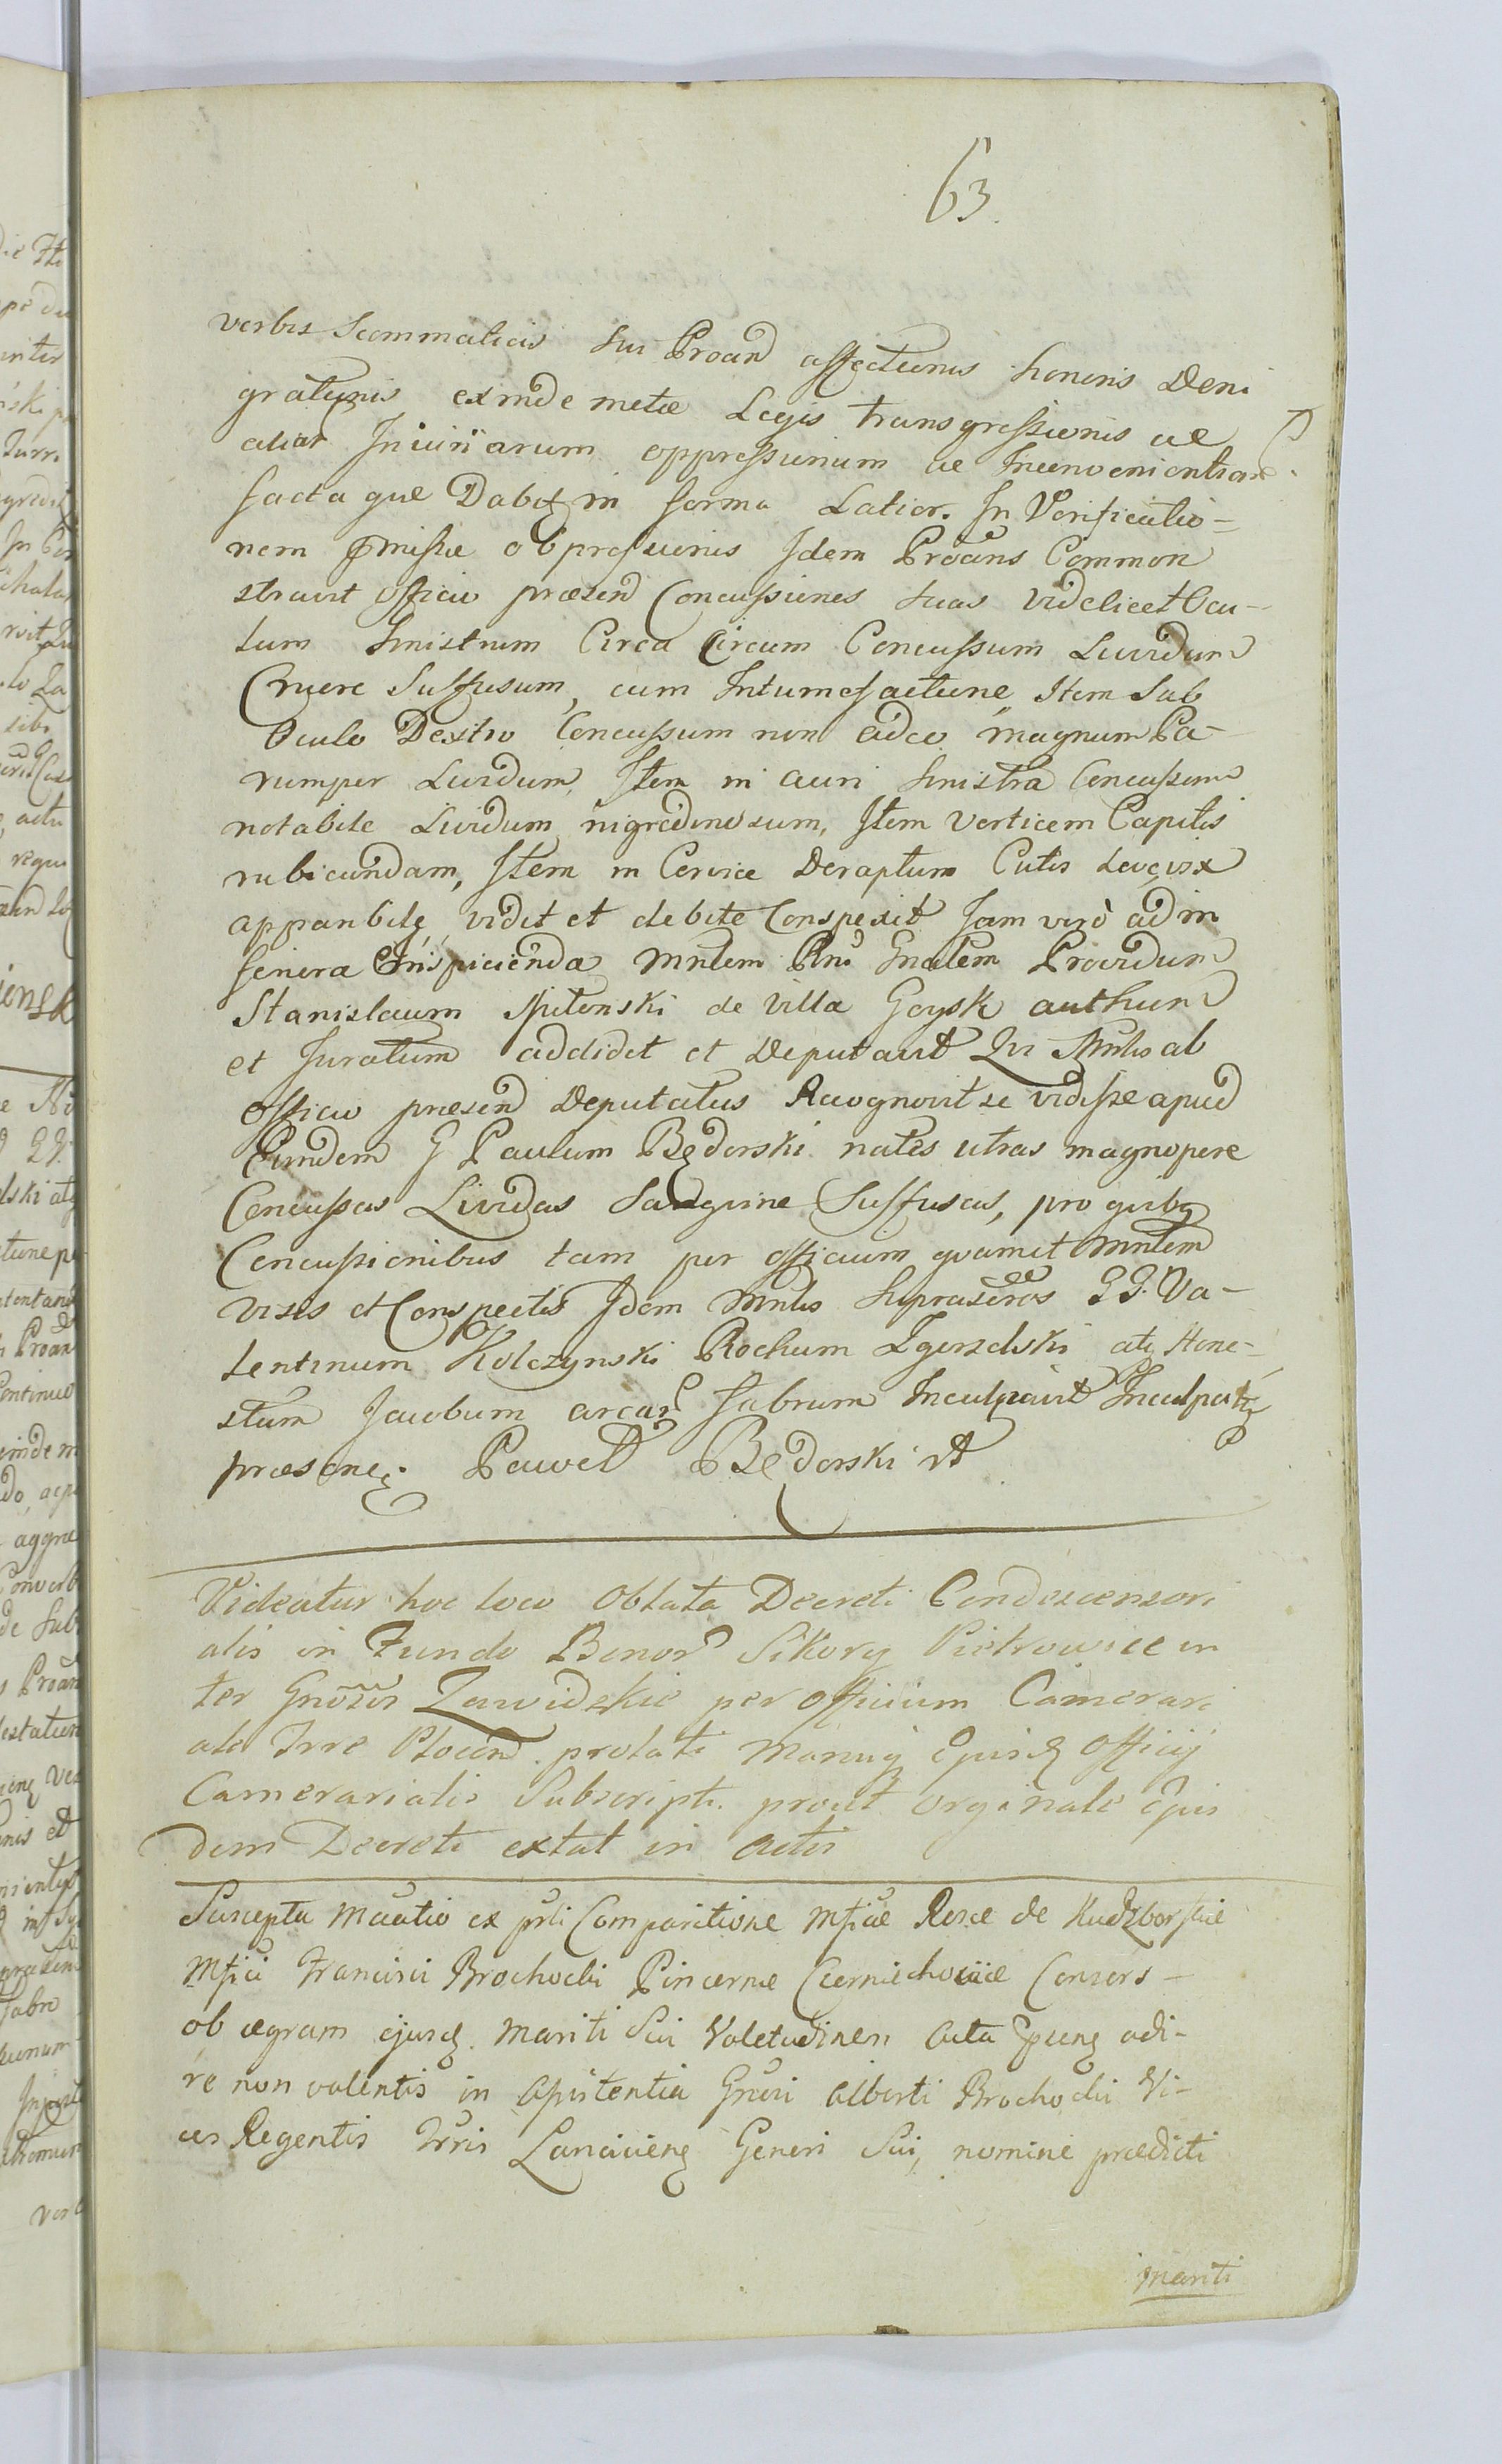 63.
verbis Scommaticis sui Proand affectionis honoris Deni
gratiynis exinde metæ Legis transgressionis ac
aliar Iniuriarum oppressionum ac Inconvenientiar
facta quæ Dabuᵗ in forma Latior. In Verificatio-
nem pmissæ obpressionis Idem Proans Common
stravit officio præsend Concussiones suas videlicet Ocu-
lum Sinistrum Circa Circum Concussum Lividum
Cruere Suffusum, cum Intumefactione, Item Sub
Oculo Dextro Concussum non adeo magnum Pa-
rumper Lividum, Item in auri Sinistra Concussum
notabile Lividum nigredinosum, Item verticem Capitis
rubicundam, Item in Cervice Deraptum Cutis
vidit et debite Conspexit Jam verò ad in
feriora Inspicienda Mnlem Rni Gnalem Providum
Stanislaum de villa Goysk authum
et Juratum addidit et Deputavit Qui Mnlis ab
officio præsend Deputatus Recognovit se vidisse apud
Eundem G Paulum Będorski nates utras magnopere
Concussas Lividas Sangvine Suffusas, pro quibʒ
Concussionibus tam per officium qvamet Mnlem
visis et Conspectis Idem Mnlis Suprascros GG. Va-
lentinum Kolczynski Rochum Zgorzelski atqʒ Hone-
stum Jacobum arcar fabrum Inculpavit Inculpatqʒ
præsenꝫ. Paweł Będorski
Videatur hoc loco Oblata Decreti Condescensori
alis in Fundo Bonor Sikory Pietrowice in
ter Gnosos Zawidzkie per officium Camerari
ale Trre Plocen. prolati manuqʒ Ejusd Officij
Camerarialis Subscripti prout orginale Ejus
dem Decreti extat in Actis
Suscepta ex prli Comparitione Mficæ Rosæ de Kudzborskie
Mfici Francisci Brochocki Pincernæ Czerniechoviæ Consors-
ob ægram ejusd. Mariti Sui Valetudinem Acta adi-
re non valentis in Assistentia Gnosi Alberti Brochocki Vi-
ces Regentis Trris Lancicienꝫ Generi Sui, nomine prædicti
mariti